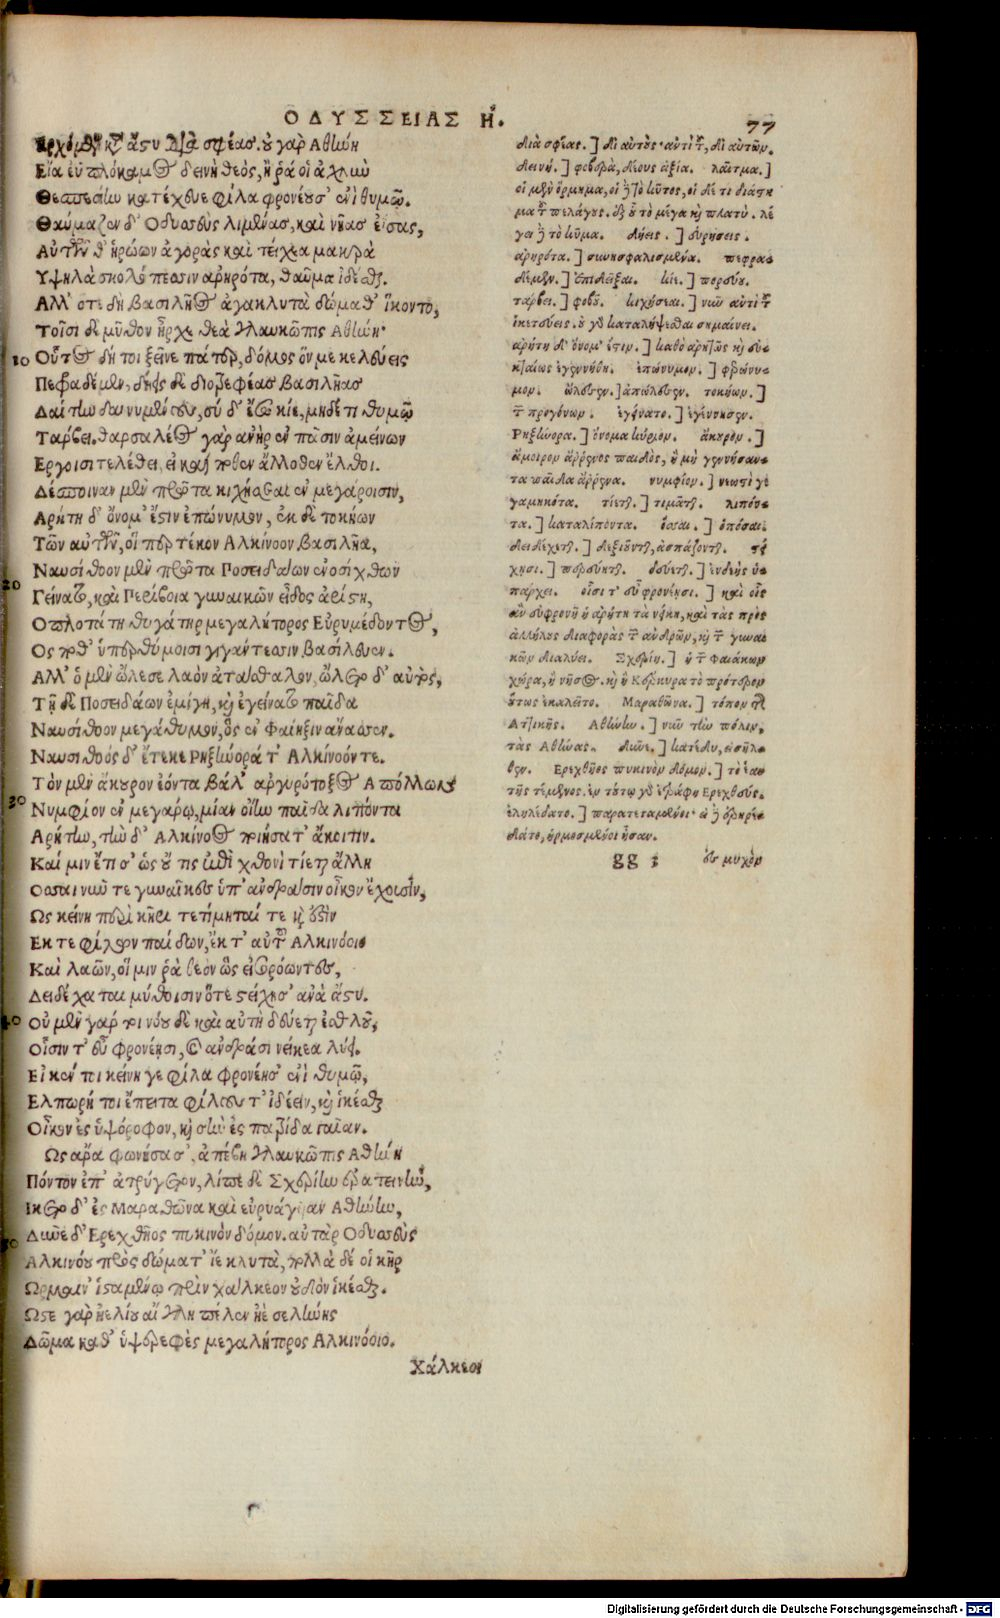 ΟΔΥΣΣΕΙΑΣ Η.
77
Ερχόμενον κατὰ ἄστυ διὰ σφέασ. οὐ γὰρ Αθήνη
Εἴα ἐϋπλόκαμος δεινὴ θεὸς, ἥ ῥά οἱ ἀχλὺν
Θεσπεσίην κατέχευε φίλα φρονέουσ' ἐνὶ θυμῷ.
Θαύμαζεν δ' Οδυσεὺς λιμένας, καὶ νῆας ἐΐσας,
Αὐτῶν θ' ἡρώων ἀγορὰς καὶ τείχεα μακρὰ
Υψηλὰ σκολόπεσσιν ἀρηρότα, θαῦμα ἰδέσθαι.
Αλλ' ὅτε δὴ βασιλῆος ἀγακλυτὰ δώμαθ' ἵκοντο,
Τοῖσι δὲ μῦθον ἦρχε θεὰ γλαυκῶπις Αθήνη·
Οὗτος δή τοι ξεῖνε πάτερ, δόμος ὅν με κελεύεις
Πεφραδέμεν, δήεις δὲ διοτρεφέας βασιλῆας
Δαίτην δαινυμένους, σύ δ' ἔσω κίε, μηδέ τι θυμῷ
Τάρβει. θαρσαλέος γὰρ ἀνὴρ ἐν πᾶσιν ἀμείνων
Εργοισι τελέθει, εἰ καί ποθεν ἄλλοθεν ἔλθοι.
Δέσποιναν μὲν πρῶτα κιχήσεαι ἐν μεγάροισιν,
Αρήτη δ' ὄνομ' ἔστιν ἐπώνυμον, ἐκ δὲ τοκήων
Τῶν αὐτῶν, οἵ περ τέκον Αλκίνοον βασιλῆα,
Ναυσίθοον μὲν πρῶτα Ποσειδάων ἐνοσίχθων
Γείνατο, καὶ Περίβοια γυναικῶν εἶδος ἀρίστη,
Οπλοτάτη θυγάτηρ μεγαλήτορος Εὐρυμέδοντος,
Ος ποθ' ὑπερθύμοισι γιγάντεσσιν βασίλευεν.
Αλλ' ὁ μὲν ὤλεσε λαὸν ἀτάσθαλον, ὤλετο δ' αὐτὸς,
Τῇ δὲ Ποσειδάων ἐμίγη, καὶ ἐγείνατο παῖδα
Ναυσίθοον μεγάθυμον, ὃς ἐν Φαίηξιν ἄνασσεν.
Ναυσίθοός δ' ἔτεκε Ρηξήνορά τ' Αλκίνοόν τε.
Τὸν μὲν ἄκουρον ἐόντα βάλ' ἀργυρότοξος Απόλλων
Νυμφίον ἐν μεγάρῳ, μίαν οἴην παῖδα λιπόντα
Αρήτην, τὴν δ' Αλκίνοος ποιήσατ' ἄκοιτιν.
Καί μιν ἔτισ' ὡς οὔ τις ἐπὶ χθονὶ τίεται ἄλλη
Οσσαι νῦν γε γυναῖκες ὑπ' ἀνδράσιν οἶκον ἔχουσιν,
Ως κείνη περὶ κῆρι τετίμηταί τε καὶ ἔστιν
Εκ τε φίλων παίδων, ἔκ τ' αὐτοῦ Αλκινόοιο
Καὶ λαῶν, οἵ μιν ῥὰ θεὸν ὣς εἰσορόωντες,
Δειδέχαται μύθοισιν ὅτε στείχησ' ἀνὰ ἄστυ.
Οὐ μὲν γάρ τι νόου δὲ καὶ αὐτὴ δεύεται ἐσθλοῦ,
Οἷσιν τ' εὖ φρονέῃσι, καὶ ἀνδράσι νείκεα λύει.
Εἴ κέν τοι κείνη γε φίλα φρονέησ' ἐνὶ θυμῷ,
Ελπωρή τοι ἔπειτα φίλους τ' ἰδέειν, καὶ ἱκέσθαι
Οἶκον ἐς ὑψόροφον, καὶ σὴν ἐς πατρίδα γαῖαν.
Ως ἄρα φωνήσασ', ἀπέβη γλαυκῶπις Αθήνη
Πόντον ἐπ' ἀτρύγετον, λίπε δὲ Σχερίην ἐρατεινὴν,
Ικετο δ' ἐς Μαραθῶνα καὶ εὐρυάγυιαν Αθήνην,
Δῦνε δ' Ερεχθῆος πυκινὸν δόμον. αὐτὰρ Οδυσεὺς
Αλκινόου πρὸς δώματ' ἴε κλυτὰ, πολλὰ δέ οἱ κῆρ
Ωρμαιν' ἱσταμένῳ πρὶν χάλκεον οὐδὸν ἱκέσθαι.
Ωστε γὰρ ἠελίου αἴγλη πέλεν ἠὲ σελήνης
Δῶμα καθ' ὑψερεφὲς μεγαλήτορος Αλκινόοιο.
Χάλκεοι
10
20
30
40
50
διὰ σφέας.] δι' αὐτοὺς· ἀντὶ τοῦ, δι' αὐτῶν.
δεινή.] φοβερὰ, δέους ἀξία. λαῖτμα.]
οἱ μὲν ὅρμημα, οἱ δὲ τὸ κῦτος, οἱ δέ τι διάστη
μα τοῦ πελάγους. ἐξ οὗ τὸ μέγα καὶ πλατύ. λέ
γει δὲ τὸ κῦμα. δήεις.] εὑρήσεις.
ἀρηρότα.] συνησφαλισμένα. πεφρα
δέμεν.] ἐπιδεῖξαι. κίε.] πορεύου.
τάρβει.] φοβοῦ. κιχήσεαι.] νῦν ἀντὶ τοῦ
ἱκετεύσεις. οὐ γὰρ καταλήψεσθαι σημαίνει.
ἀρήτη δ' ὄνομ' ἔστιν.] καθὸ ἀρητῶς καὶ εὐ
κταίως ἐγεννήθη. ἐπώνυμον.] φερώνυ
μον. ὤλεσεν.] ἀπώλεσεν. τοκήων.]
τῶν προγόνων. ἐγείνατο.] ἐγέννησεν.
Ρηξήνορα.] ὄνομα κύριον. ἄκουρον.]
ἄμοιρον ἄρρενος παιδὸς, ἢ μὴ γεννήσαν
τα παῖδα ἄρρενα. νυμφίον.] νεωστὶ γε
γαμηκότα. τίεται.] τιμᾶται. λιπόν
τα.] καταλιπόντα. ὅσσαι.] ὁπόσαι.
δειδέχεται.] δεξιοῦνται, ἀσπάζονται. στεί
χησι.] πορεύηται. δεύεται.] ἐνδεὴς ὑ
πάρχει. οἷσι τ' εὖ φρονέησι.] καὶ οἷς
ἂν εὐφρονῇ ἡ ἀρήτη τὰ νείκη, καὶ τὰς πρὸς
ἀλλήλους διαφορὰς τῶν ἀνδρῶν, καὶ τῶν γυναι
κῶν διαλύει. Σχερίην.] ἡ τῶν Φαιάκων
χώρα, ἡ νῆσος. καὶ ἡ Κέρκυρα τὸ πρότερον
οὕτως ἐκαλεῖτο. Μαραθῶνα.] τόπον τῆς
Ἀττικῆς. Αθήνην.] νῦν τὴν πόλιν,
τὰς Αθήνας. δῦνε.] κατέδυ, εἰσῆλ
θεν. Ερεχθῆος πυκινὸν δόμον.] τὸ ἑαυ
τῆς τέμενος. ἐν τούτῳ γὰρ ἐτράφη Ερεχθεύς.
ἐληλέδατο.] παρατεταμένοι· ὡ δὲ ἐρηρέ
δατο, ἡρμοσμένοι ἦσαν.
gg 3
ἐς μυχὸν
Digitalisierung gefördert durch die Deutsche Forschungsgemeinschaft - DFG